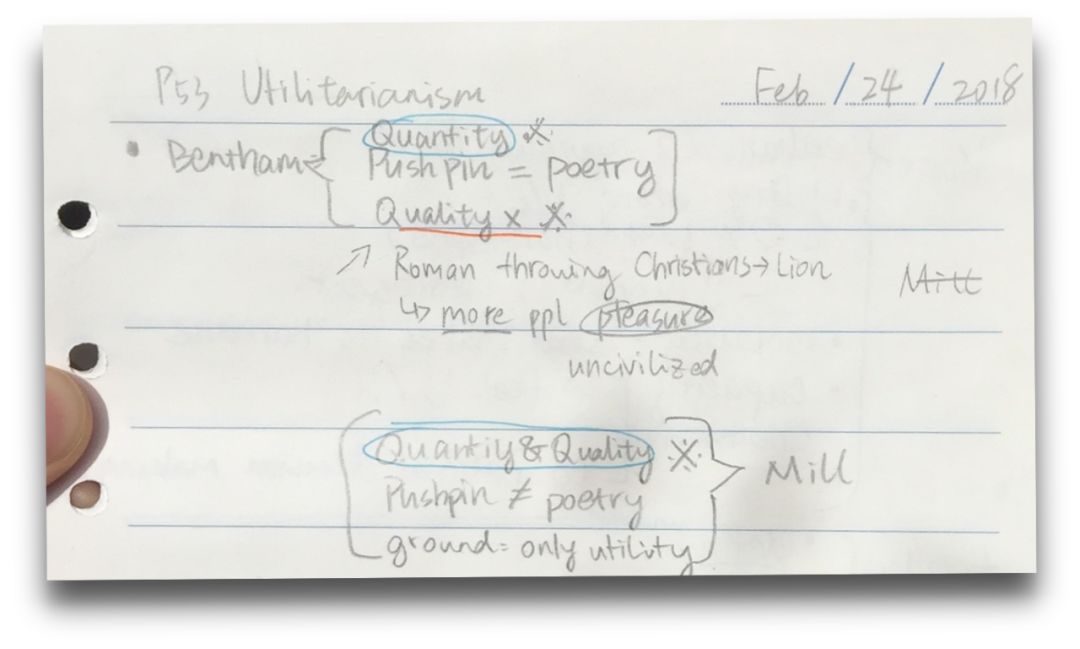 P53 Utilitarianism
Feb / 24 / 2018
• Bentham = { Quantity ※
Pushpin = poetry
Quality × ※
↗ Roman throwing Christians → Lion
Mill
↳ more ppl pleasure
uncivilized
Quantiy & Quality ※
Mill
Pushpin ≠ poetry
ground = only utility